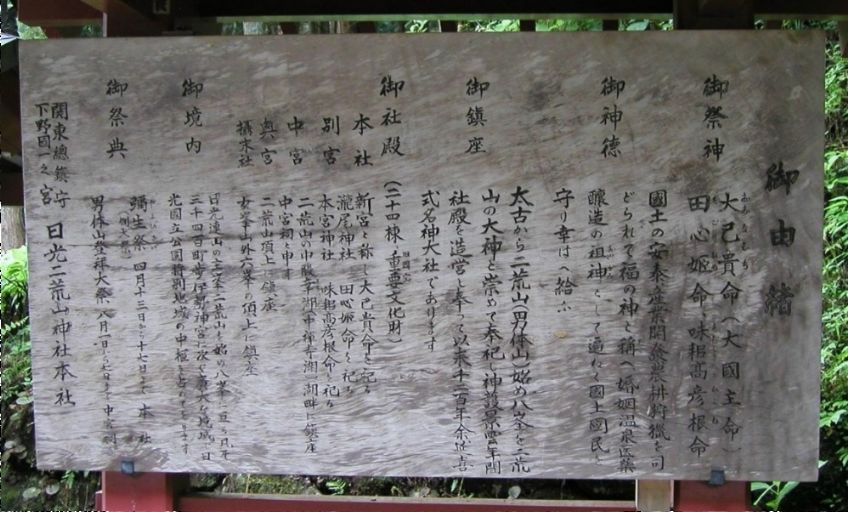 御由緒
御祭神 大己貴命(大國主命)
田心姫命 味耜高彦根命
御神徳 國土の安泰産業開發農耕狩獵を司
どられて福の神と稱へ婚姻温泉医藥
醸造の祖神として遍ねく國土國民を
守り幸はへ給ふ
御鎮座 太古から二荒山(男体山)始め八峯を二荒
山の大神と崇めて奉祀し神護景雲年間
社殿を造営し奉って以来千二百年余世々喜
式名神大社であります
御社殿 (二十四棟 重要文化財)
本社 新宮と称し大己貴命を祀る
別宮 瀧尾神社 田心姫命を祀る
本宮神社 味耜高彦根命を祀る
中宮 二荒山の中腹幸湖(中禅寺湖)湖畔に鎮座
中宮祠と申す
奥宮 二荒山頂上に鎮座
攝末社 女峯山外六峯の頂上に鎮座
御境内 日光連山の主峯二荒山を始め八峯に亘り凡そ
三千四百町歩伊勢神宮に次ぐ廣大な地域で日
光國立公園特別地域の中枢を占めております
御祭典 彌生祭 四月十三日から十七日まで 本社
男体山登拝大祭 八月一日から七日まで 中宮祠
関東總鎮守
下野國一之宮 日光二荒山神社本社